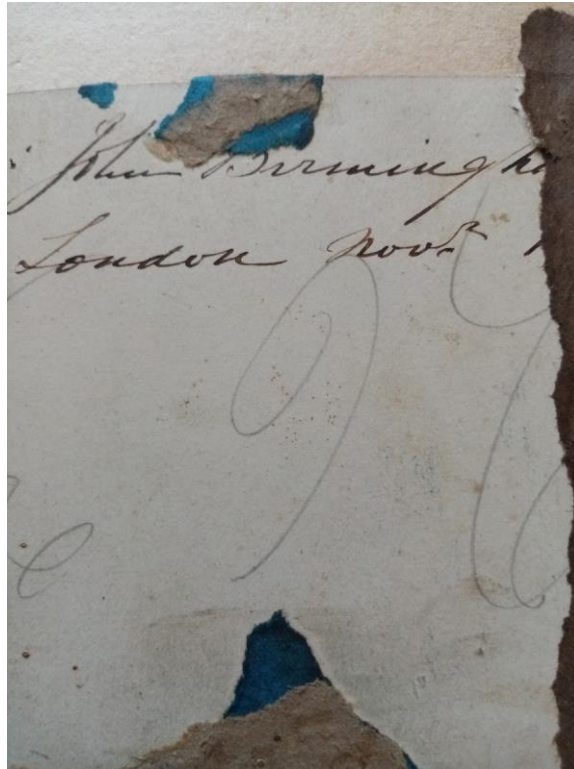 John Birmingh
London Novr